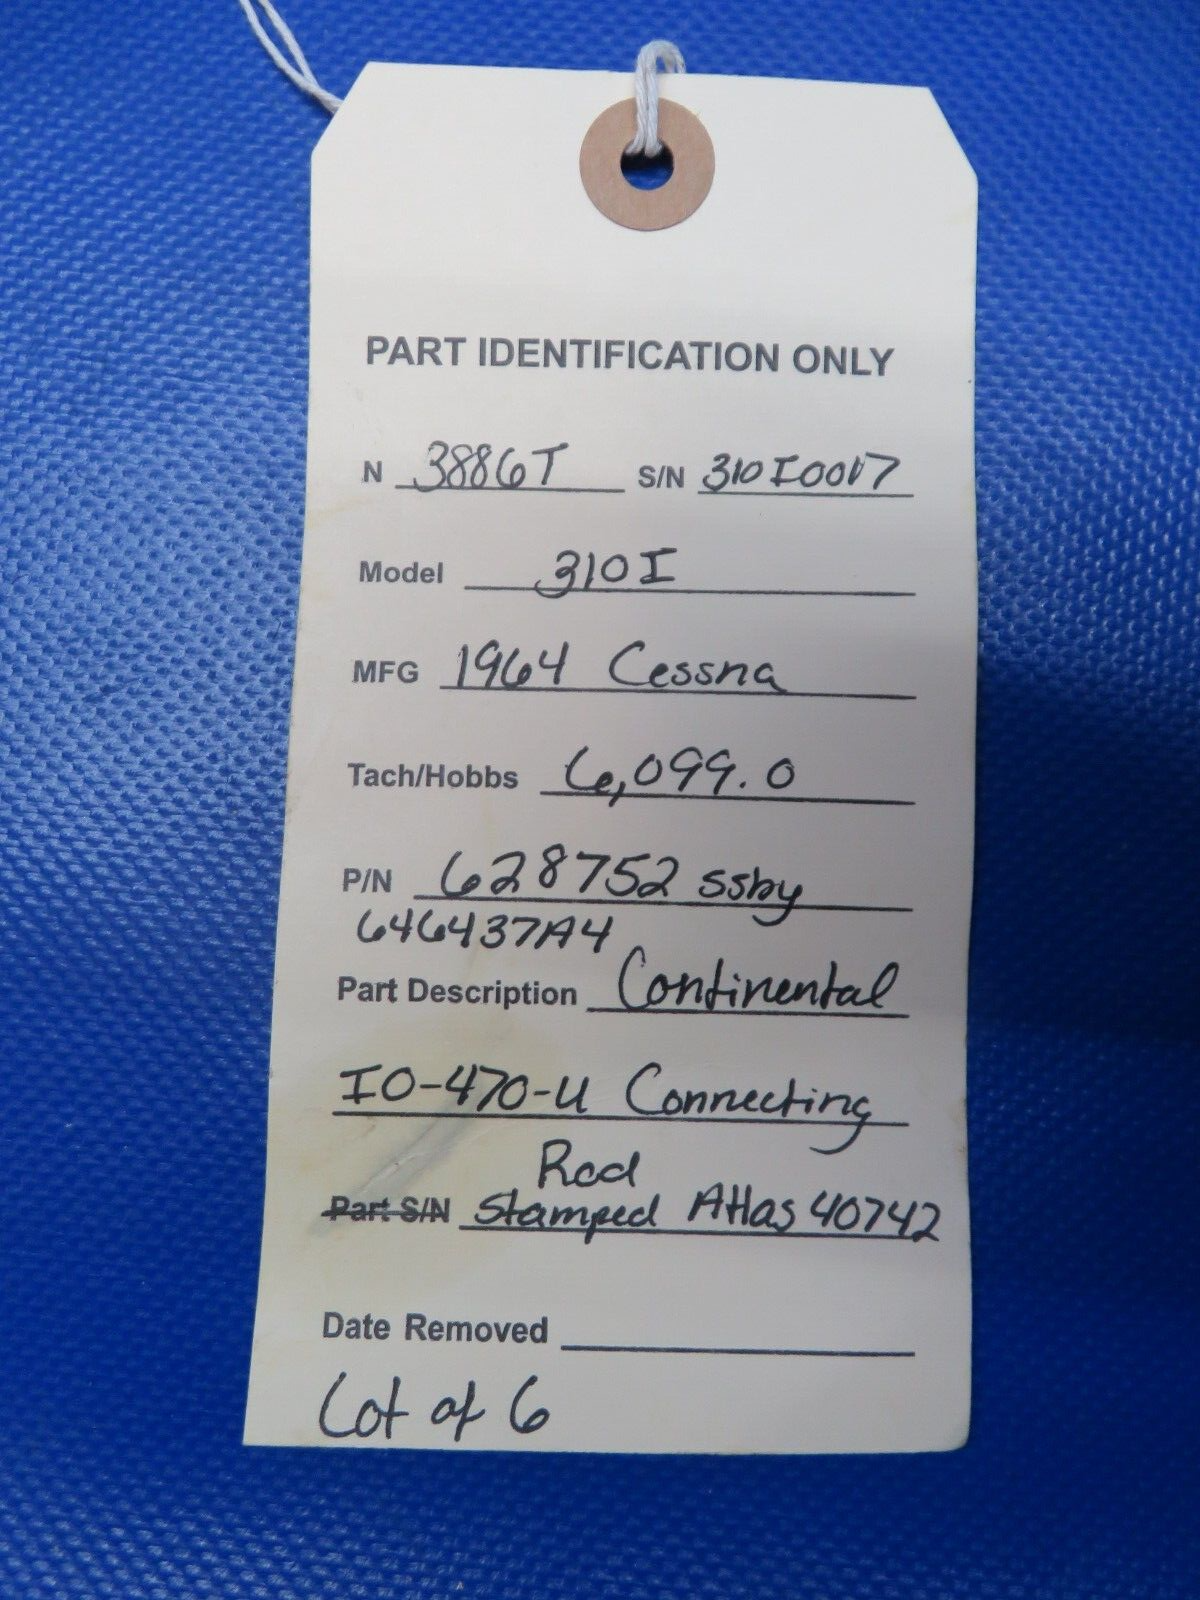 PART IDENTIFICATION ONLY
N 3886T S/N 310I0017
Model 310I
MFG 1964 Cessna
Tach/Hobbs 6,099.0
P/N 628752 ssby
646437A4
Part Description Continental
IO-470-U Connecting
Rod
Part S/N Stamped Atlas 40742
Date Removed
Lot of 6